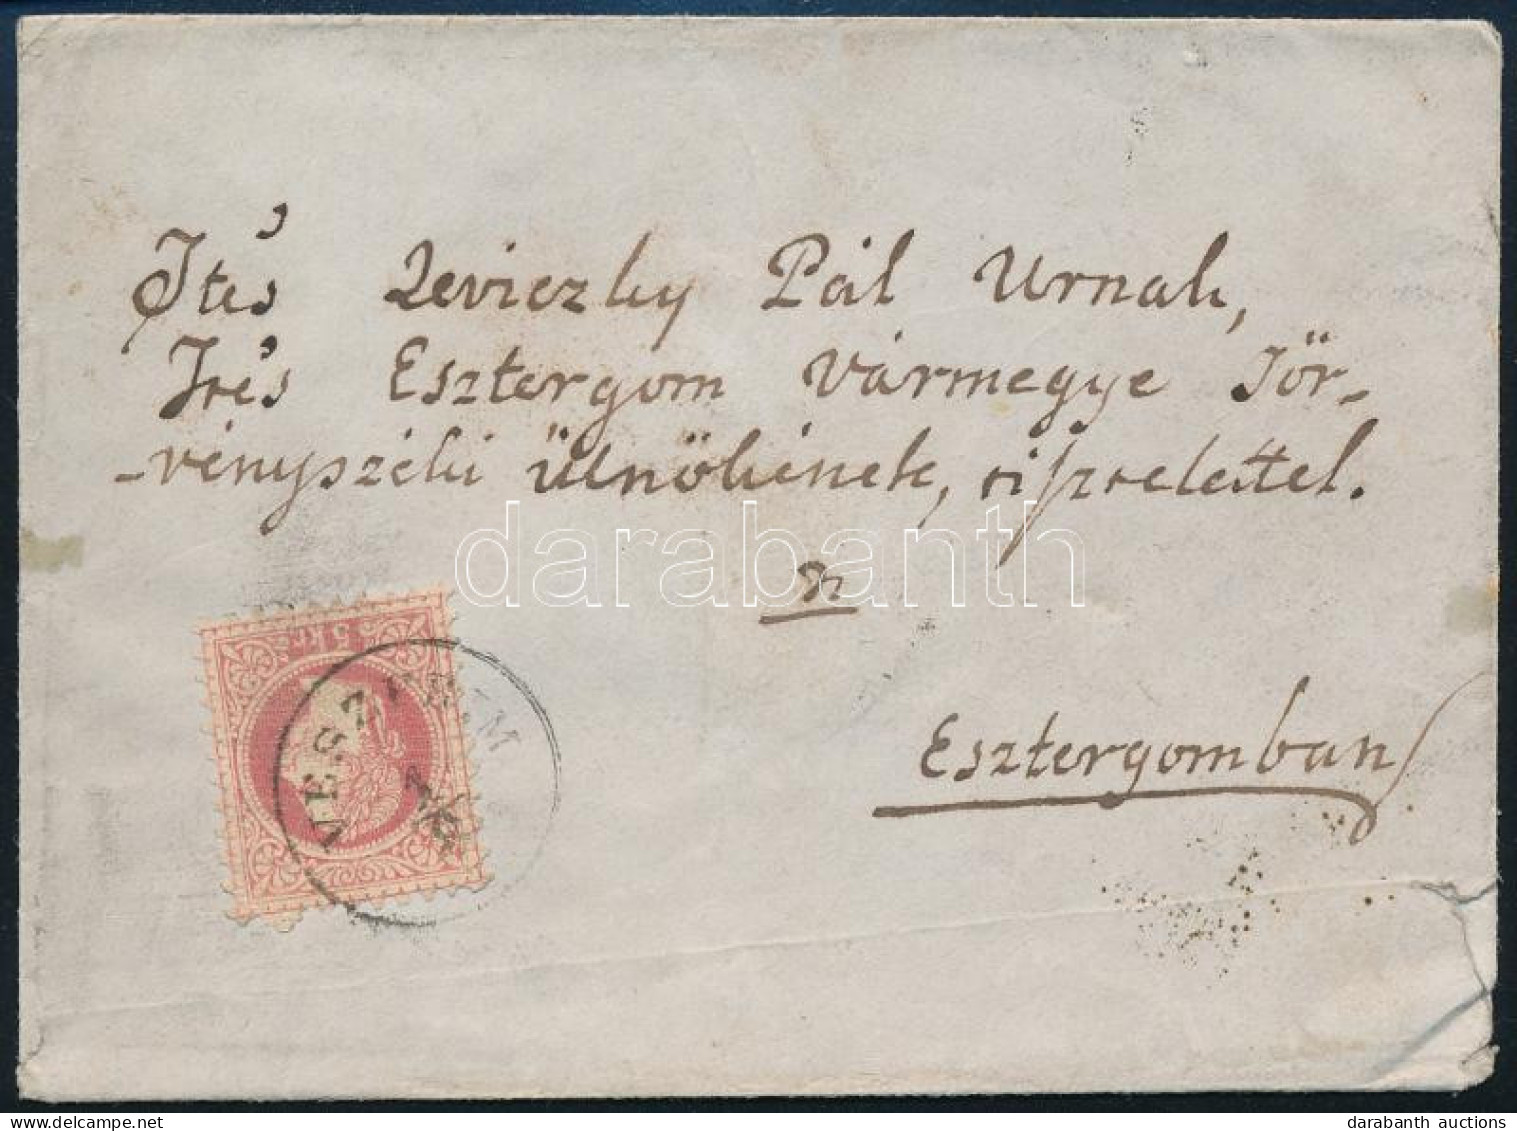 Ités Reviczky Pál Urnak,
Ités Esztergom Vármegye Tör-
-vényszéki ülnökének, tisztelettel.
darabanth
Esztergomban
5 Kr.
VESZPRÉM
darabanth auctions